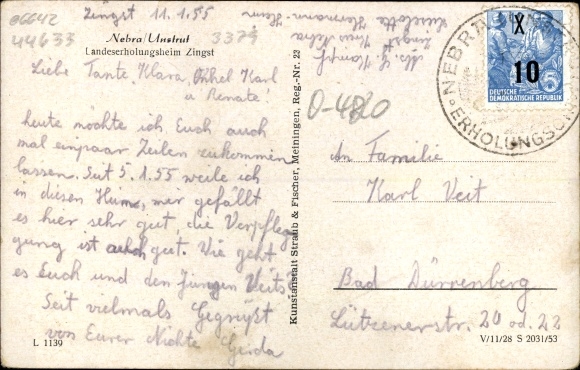 06642
44633
3379
Zingst 11.1.55
Nebra/Unstrut
Landeserholungsheim Zingst
Liebe Tante Klara, Onkel Karl
u Renate!
heute möchte ich Euch auch
mal einpaar Zeilen zukommen
lassen. Seit 5.1.55 weile ich
in diesen Heime, mir gefällt
es hier sehr gut, die Verpfleg
gung ist auch gut. Wie geht
es Euch und den jüngen Veits
Seit vielmals Gegrüßt
von Eurer Nichte Gerda
L 1139
Zingst
Kunstanstalt Straub & Fischer, Meiningen, Reg.-Nr. 23
X
10
DEUTSCHE
DEMOKRATISCHE REPUBLIK
5
NEBRA
ERHOLUNGSO
O-4820
An Familie
Karl Veit
Bad Dürrenberg
Lützenerstr. 20 od. 22
V/11/28 S 2031/53